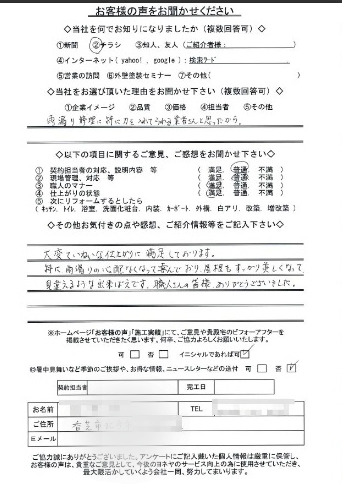 お客様の声をお聞かせください
◇当社を何でお知りになりましたか（複数回答可）◇
①新聞 ②チラシ ③知人、友人（ご紹介者様： ）
④インターネット（yahoo!、google）：検索ワード
⑤営業の訪問 ⑥外壁塗装セミナー ⑦その他( )
◇当社をお選び頂いた理由をお聞かせ下さい（複数回答可）◇
①企業イメージ ②品質 ③価格 ④担当者 ⑤その他
雨漏り修理に特に力を入れてられる業者さんと思ったから。
◇以下の項目に関するご意見、ご感想をお聞かせ下さい◇
① 契約担当者の対応、説明内容 等 （ 満足、普通、不満 ）
② 現場管理、対応 等 （ 満足、普通、不満 ）
③ 職人のマナー （ 満足、普通、不満 ）
④ 仕上がりの状態 （ 満足、普通、不満 ）
⑤ 次にリフォームするとしたら
（キッチン、トイレ、浴室、洗面化粧台、内装、カーポート、外構、白アリ、改築、増改築）
◇その他お気付きの点や感想、ご紹介情報等をご記入下さい◇
大変ていねいな仕上がりに満足しております。
特に雨漏りの心配なくなって喜んでおり、屋根もすっかり美しくなって
見違えるような出来ばえです。職人さんの皆様、ありがとうございました。
※ホームページ「お客様の声」「施工実績」にて、ご意見や貴殿宅のビフォーアフターを
掲載させていただきたく思います。何卒、ご協力よろしくお願いいたします。
可 □ 否 □ イニシャルであれば可 ☑
暑中見舞いなど季節のご挨拶や、お得な情報、ニュースレターなどの送付 可 □ 否 ☑
契約担当者 完工日
お名前 TEL
ご住所
Eメール
ご協力誠にありがとうございました。アンケートにご記入戴いた個人情報は厳重に保管し、
お客様の声は、貴重なご意見として、今後のヨネヤのサービス向上の為に使用させていただき、
最大限活かしていくよう会社一同、努力してまいります。